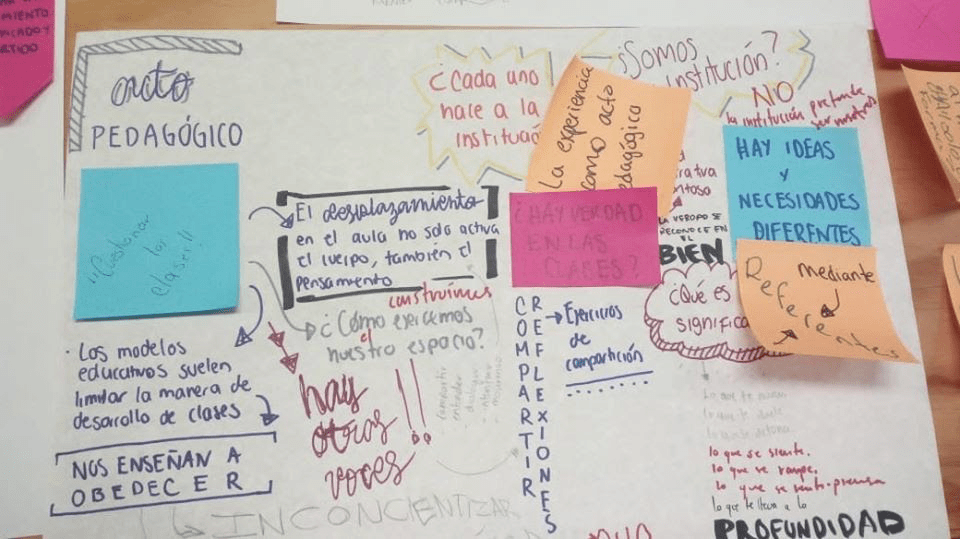 MIENTO
acto
PEDAGÓGICO
"Cuestionar
las
clases!!
El desplazamiento
en el aula no solo activa
el cuerpo, también el
pensamiento
construimos
¿Cómo ejercemos
el
nuestro espacio?
· Los modelos
educativos suelen
limitar la manera de
desarrollo de clases
NOS ENSEÑAN A
OBEDECER
hay
otras
voces
!!
compartir
entender
dialogar
INCONCIENTIZAR
¿Cada uno
hace a la
La experiencia
como acto
pedagógico
¿Somos
institución?
NO
la institución pretende
ser nosotros
HAY IDEAS
Y
NECESIDADES
DIFERENTES
¿HAY VERDAD
EN LAS
CLASES?
COMPARTIR
REFLEXIONES
→ Ejercicios
de
compartición
BIEN
¿Qué es
Mediante
Referentes
lo que se siente.
lo que se rompe.
lo que se
lo que te lleva a lo
PROFUNDIDAD